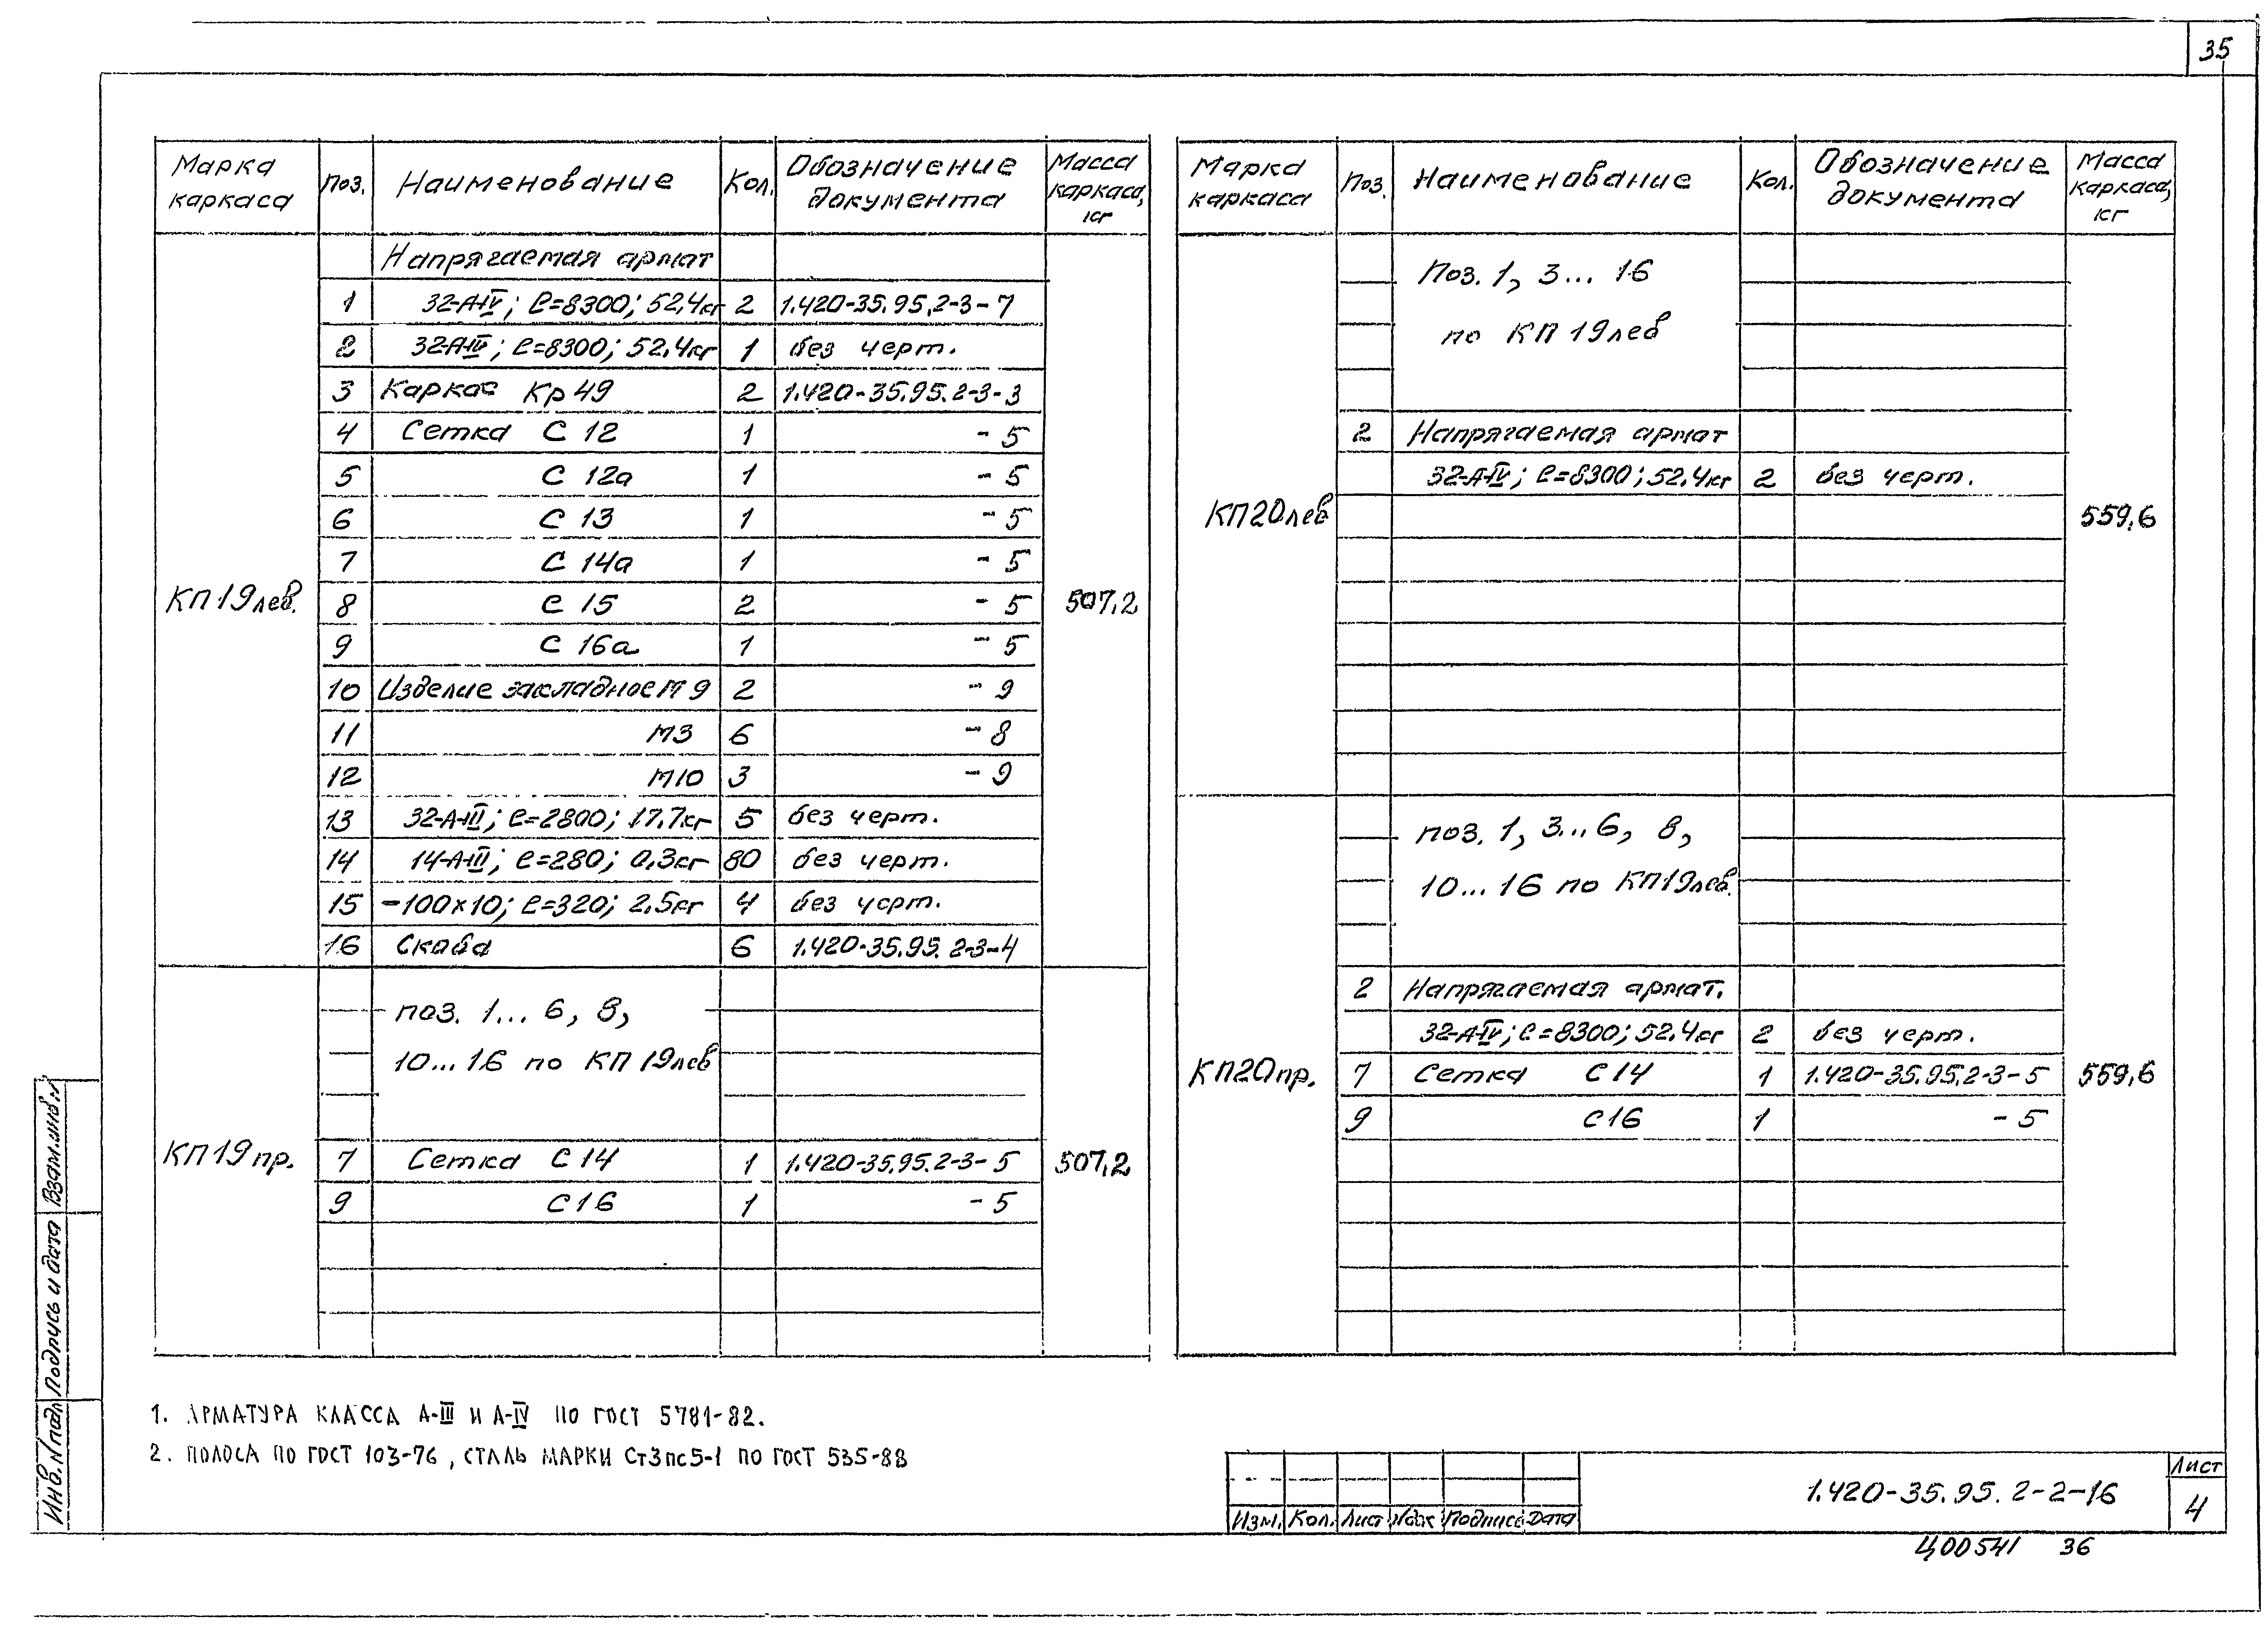 35
Марка каркаса Поз. Наименование Кол. Обозначение документа Масса каркаса, кг
Напрягаемая армат
1 32-А-IV; ℓ=8300; 52,4кг 2 1.420-35.95.2-3-7
2 32-А-IV; ℓ=8300; 52,4кг 1 без черт.
3 Каркас Кр49 2 1.420-35.95.2-3-3
4 Сетка С 12 1 -5
5 С 12а 1 -5
6 С 13 1 -5
7 С 14а 1 -5
КП19лев. 8 С 15 2 -5 507,2
9 С 16а 1 -5
10 Изделие закладное М9 2 -9
11 М3 6 -8
12 М10 3 -9
13 32-А-III; ℓ=2800; 17,7кг 5 без черт.
14 14-А-III; ℓ=280; 0,3кг 80 без черт.
15 -100×10; ℓ=320; 2,5кг 4 без черт.
16 Скоба 6 1.420-35.95.2-3-4
поз. 1... 6, 8,
10... 16 по КП 19лев
КП19пр. 7 Сетка С14 1 1.420-35.95.2-3-5 507,2
9 С16 1 -5
Марка каркаса Поз. Наименование Кол. Обозначение документа Масса каркаса, кг
Поз. 1, 3... 16
по КП 19лев
2 Напрягаемая армат
32-А-IV; ℓ=8300; 52,4кг 2 без черт.
КП20лев 559,6
поз. 1, 3... 6, 8,
10... 16 по КП19лев.
2 Напрягаемая армат.
32-А-IV; ℓ=8300; 52,4кг 2 без черт.
КП20пр. 7 Сетка С14 1 1.420-35.95.2-3-5 559,6
9 С16 1 -5
1. АРМАТУРА КЛАССА А-III И А-IV ПО ГОСТ 5781-82.
2. ПОЛОСА ПО ГОСТ 103-76, СТАЛЬ МАРКИ Ст3пс5-1 ПО ГОСТ 535-88
Изм. Кол. Лист №док Подпись Дата
1.420-35.95.2-2-16
Лист
4
Ц00541 36
Инв.№подл Подпись и дата Взам.инв.№